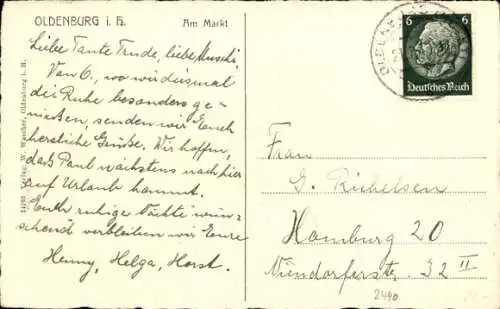 OLDENBURG i. H. Am Markt
Liebe Tante Trude, liebe Muschi,
Von O., wo wir diesmal
die Ruhe besonders ge-
nießen, senden wir Euch
herzliche Grüße. Wir hoffen,
daß Paul nächstens nach hier
auf Urlaub kommt.
Euch ruhige Nächte wün-
schend verbleiben wir Eure
Henny, Helga, Horst.
Verlag W. Wauther, Oldenburg i. H.
6 6
Deutsches Reich
Frau
G. Richelsen
Hamburg 20
Niendorferstr. 32 II
2490